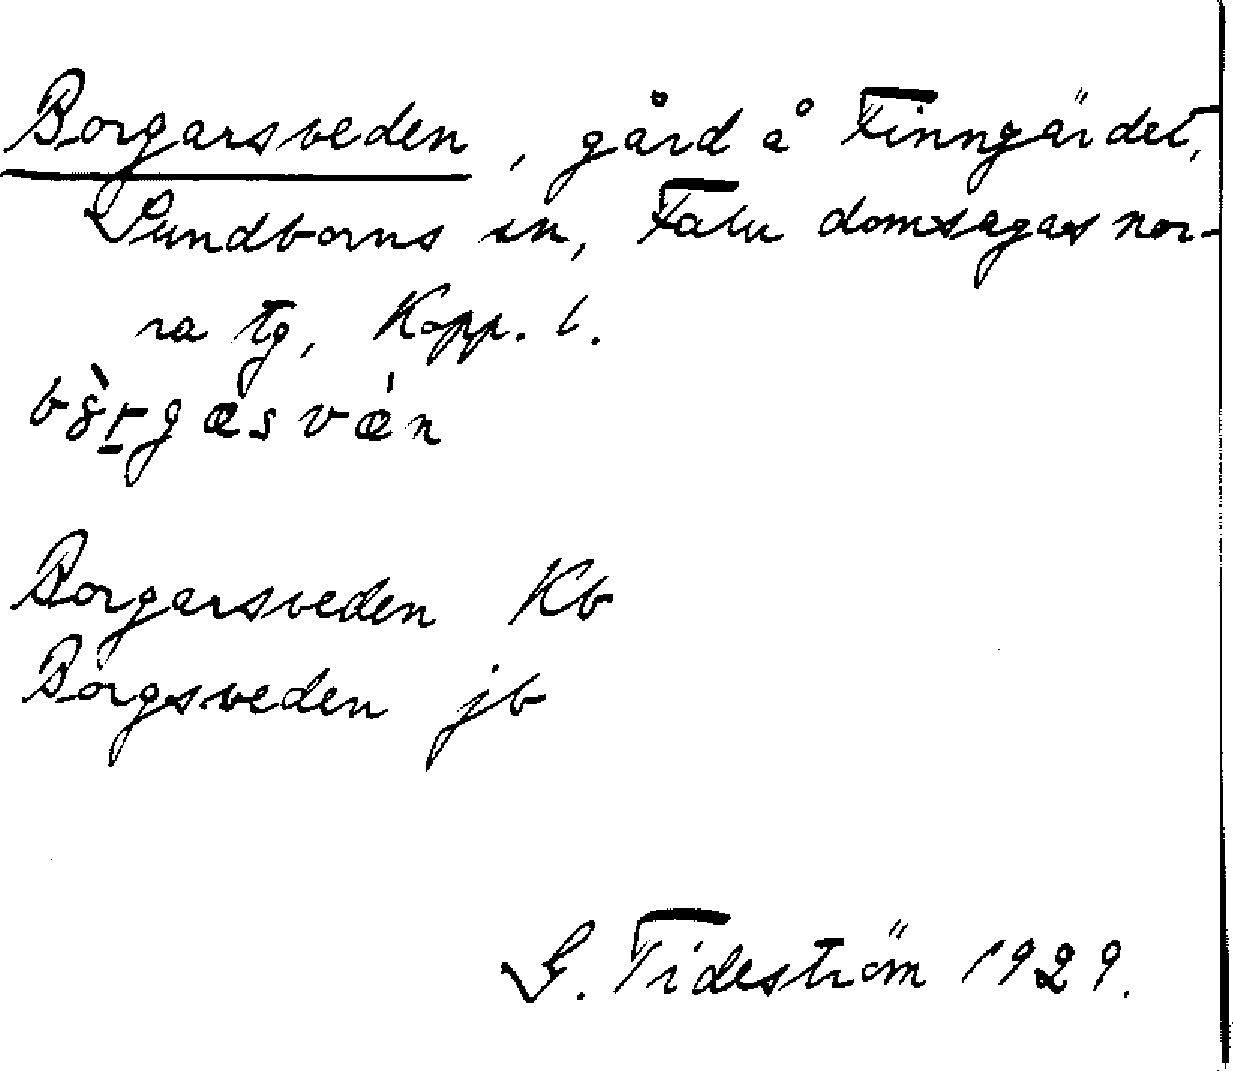 Borgarsveden, gård å Finngärdet,
Sundborns sn, Falu domsagas nor-
ra tg, Kopp. l.
Borgarsveden Kb
Borgsveden jb
G. Tideström 1929.